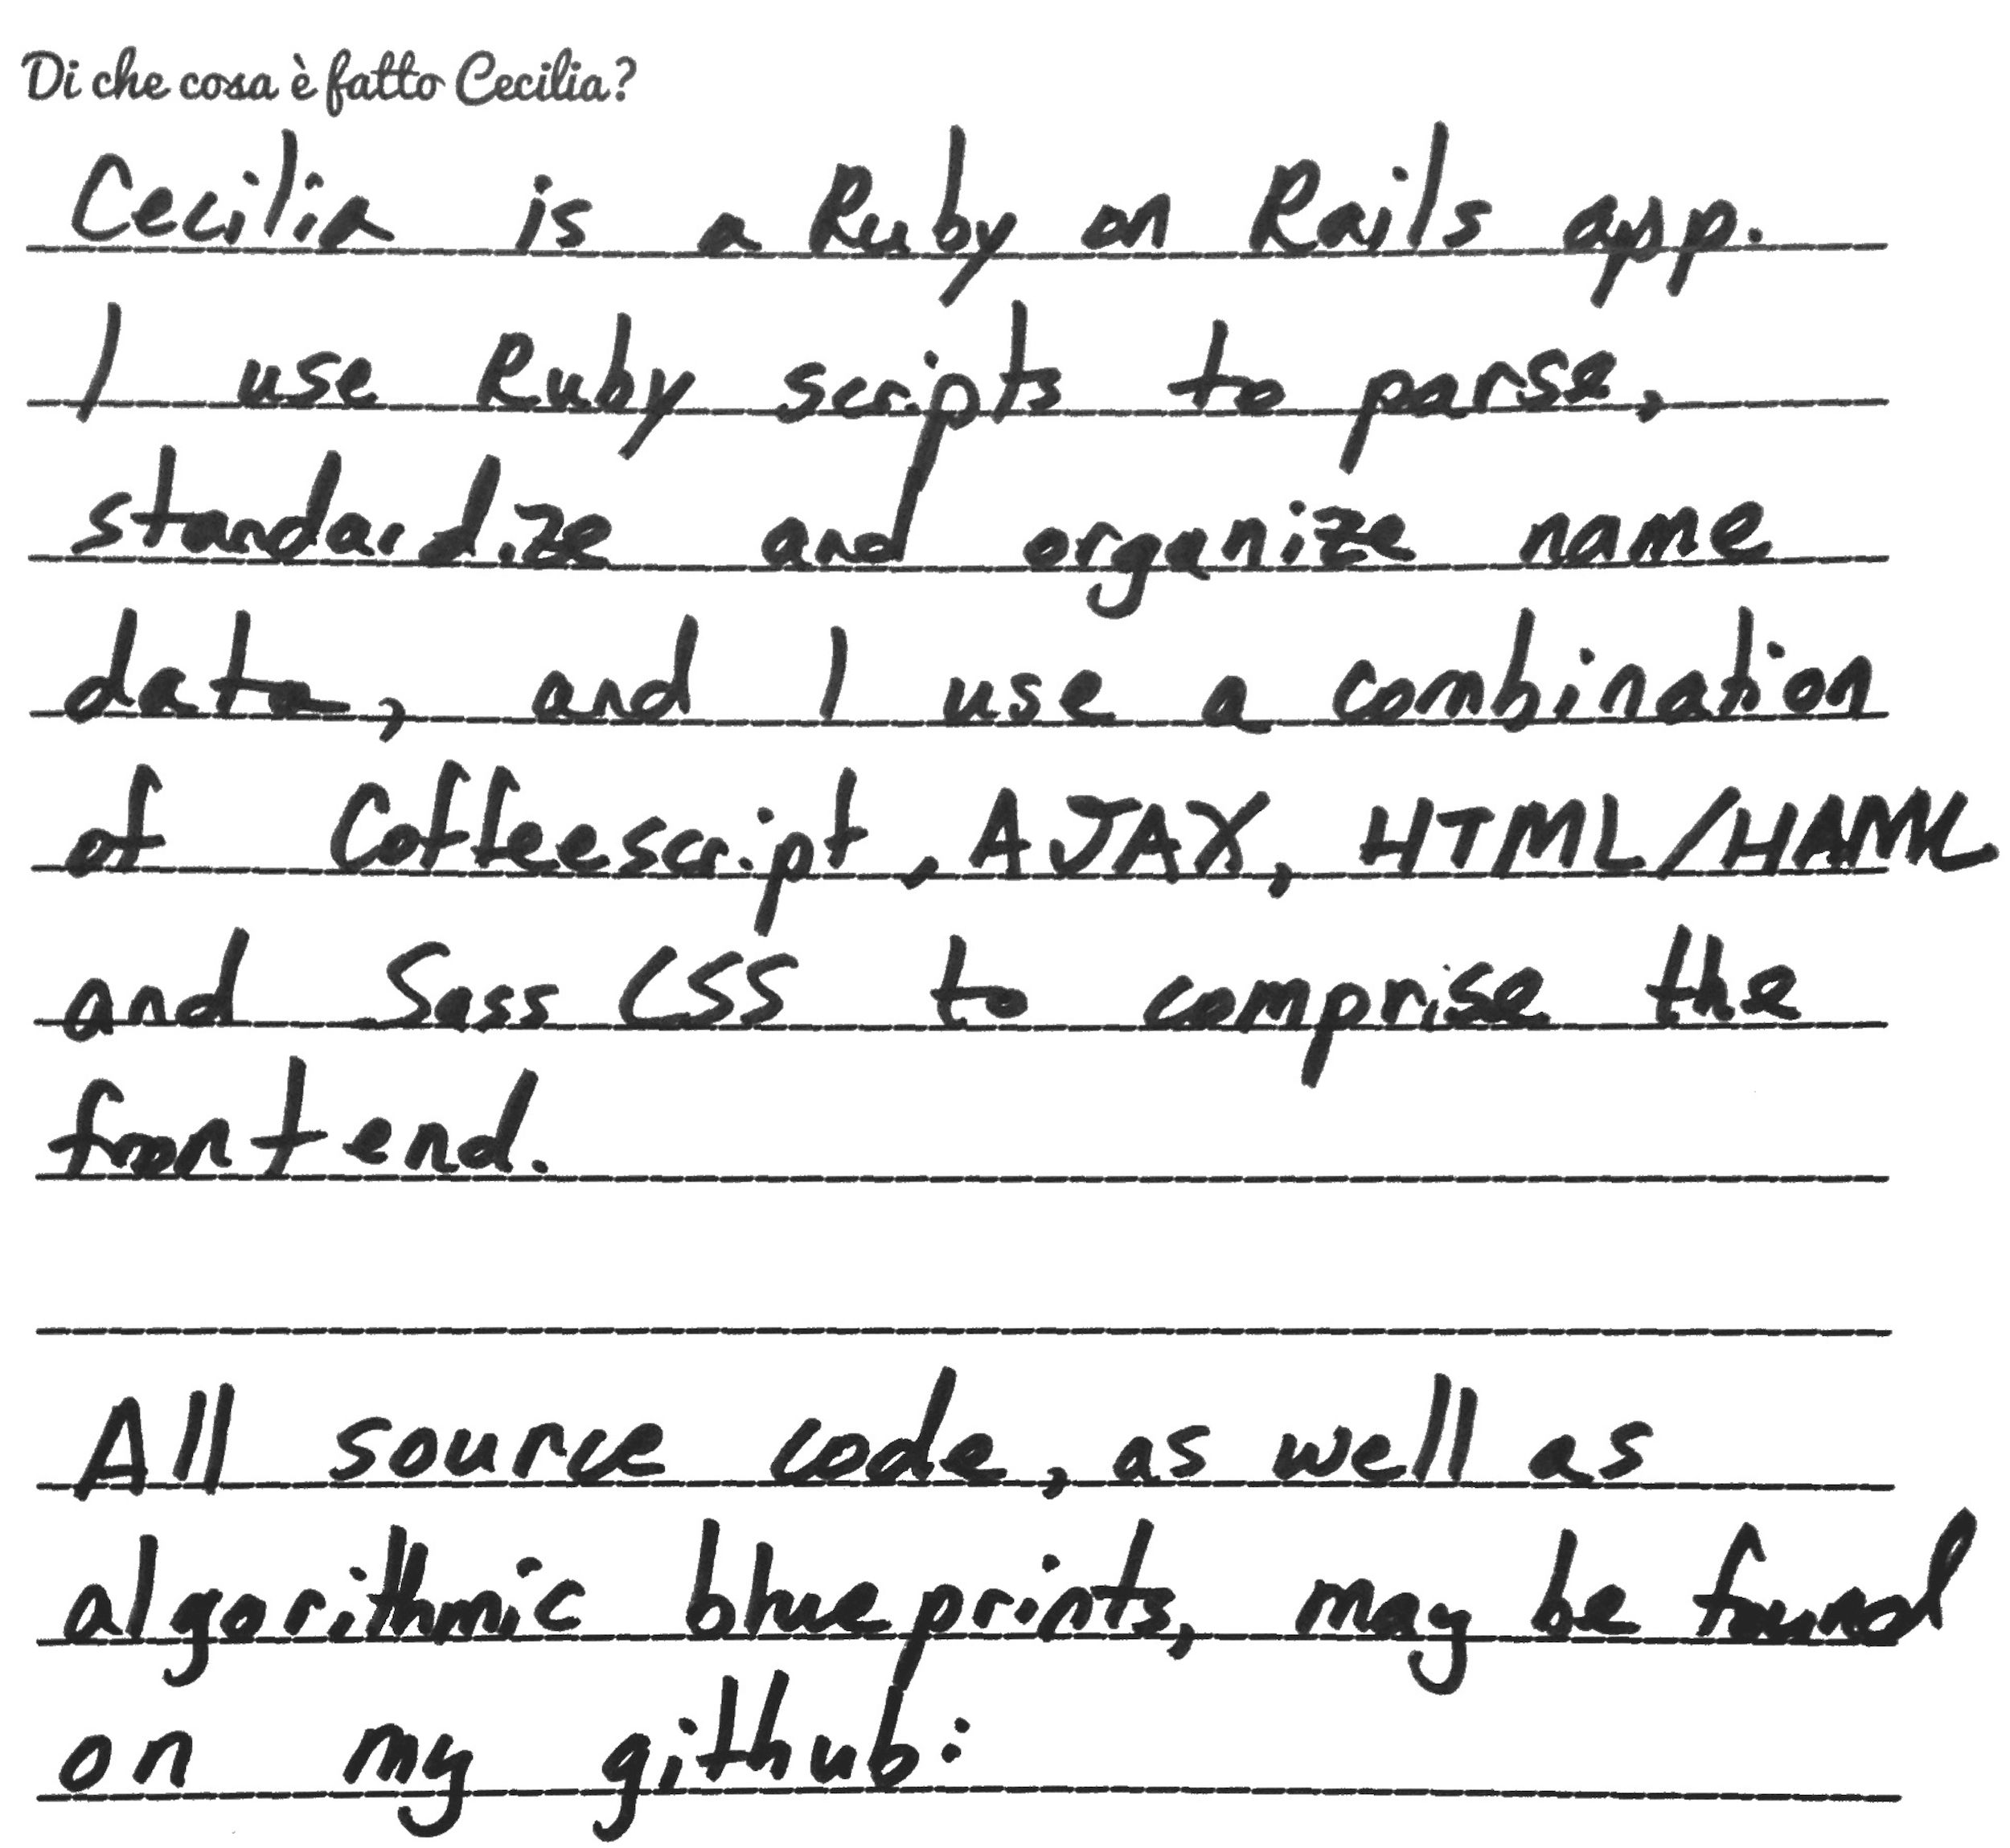 Di che cosa è fatto Cecilia?
Cecilia is a Ruby on Rails app.
I use Ruby scripts to parse,
standardize and organize name
data, and I use a combination
of Coffeescript, AJAX, HTML/HAML
and Sass CSS to comprise the
frontend.
All source code, as well as
algorithmic blueprints, may be found
on my github: